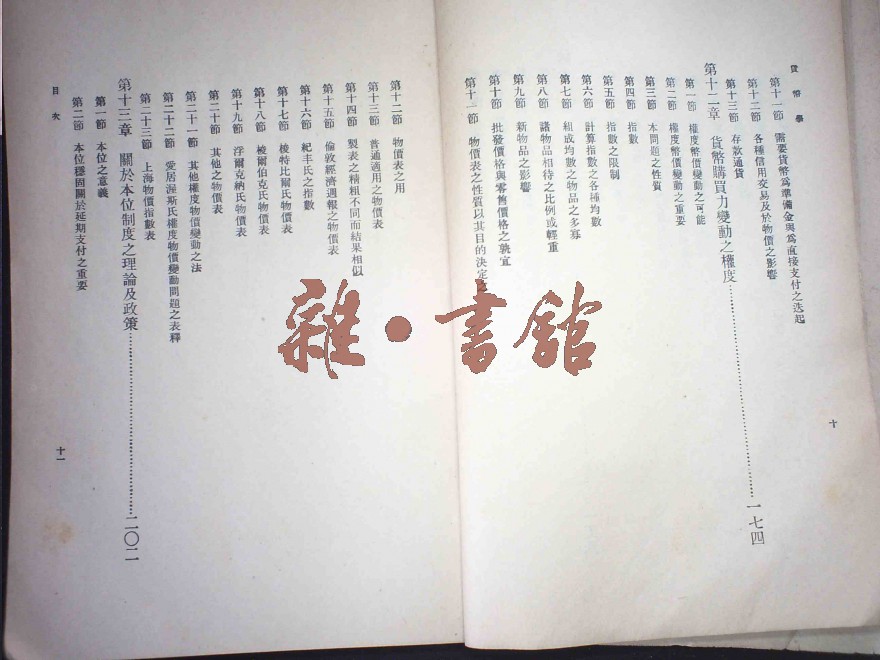 貨幣學
第十一節 需要貨幣爲準備金與爲直接支付之迭起
第十二節 各種信用交易及於物價之影響
第十三節 存款通貨
第十二章 貨幣購買力變動之權度……一七四
第一節 權度幣價變動之可能
第二節 權度幣價變動之重要
第三節 本問題之性質
第四節 指數
第五節 指數之限制
第六節 計算指數之各種均數
第七節 組成均數之物品之多寡
第八節 諸物品相待之比例或輕重
第九節 新物品之影響
第十節 批發價格與零售價格之孰宜
第十一節 物價表之性質以其目的決定之
十
第十二節 物價表之用
第十三節 普通適用之物價表
第十四節 製表之精粗不同而結果相似
第十五節 倫敦經濟週報之物價表
第十六節 紀丰氏之指數
第十七節 梭特比爾氏物價表
第十八節 梭爾伯克氏物價表
第十九節 浮爾克納氏物價表
第二十節 其他之物價表
第二十一節 其他權度物價變動之法
第二十二節 愛居渥斯氏權度物價變動問題之表釋
第二十三節 上海物價指數表
第十三章 關於本位制度之理論及政策……二〇二
第一節 本位之意義
第二節 本位穩固關於延期支付之重要
目次
十一
雜·書館